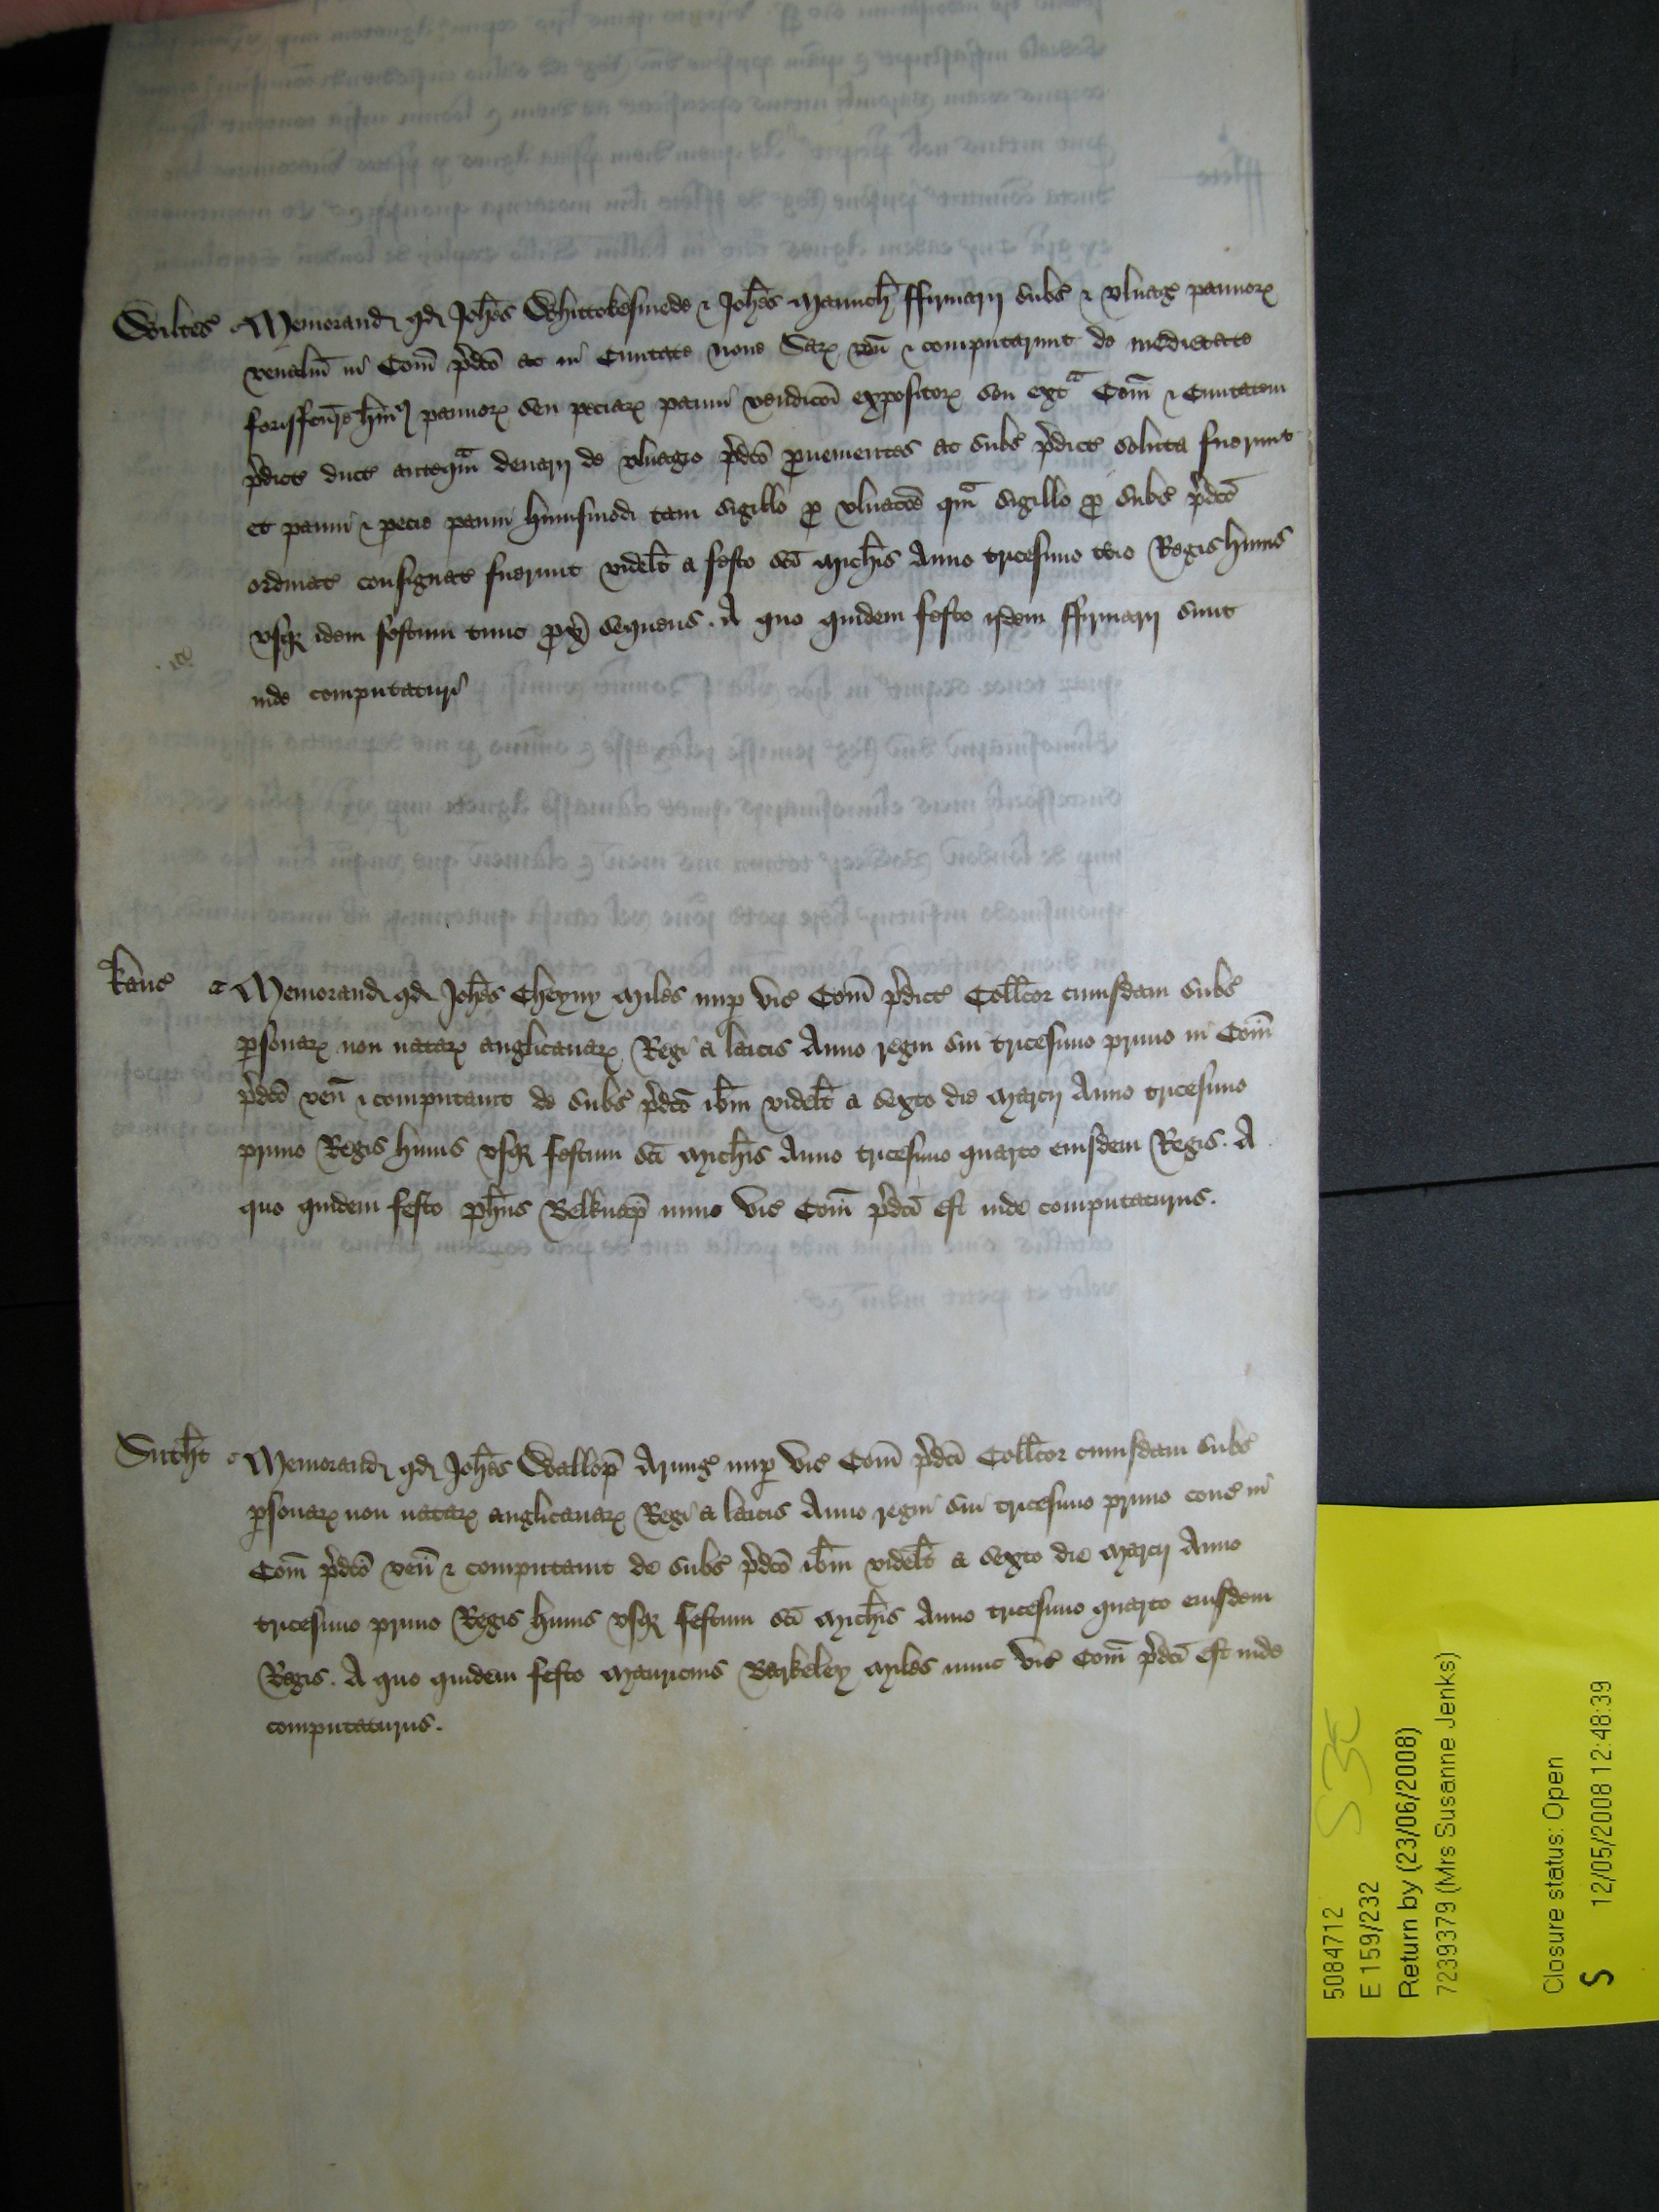 Wiltes Memorand qd Joh̄es Whittokesmede & Joh̄es Mannch̄ ffirmarij subs & vlnag pannoꝝ
venaliū in Com̄ p̄dc̄o ac in Ciuitate Noue Saꝝ ven̄ & computarunt de medietate
forisfcūre hm̄oi pannoꝝ seu peciaꝝ panni vendicōi expositoꝝ seu extᵃ Com̄ & Ciuitatem
p̄dict duct anteqᵃm denarij de vlnagio p̄dc̄o ꝓuenientes ac subs p̄dict soluta fuerunt
et panni & pecie panni huiusmodi tam sigillo ꝓ vlnac̄oe qᵃm sigillo ꝓ subs p̄dc̄o
ordinat consignat fuerunt videlt̄ a festo sc̄i Mich̄is Anno tricesimo tc̄io Regis huius
vsqꝫ idem festum tunc ꝓx̄ sequens. A quo quidem festo ijdem ffirmarij sunt
inde computaturi
Kanc Memorand qd Joh̄es Cheyny Miles nuꝑ vic Com̄ p̄dict Coll̄cor cuiusdam subs
ꝑsonaꝝ non nataꝝ anglicanaꝝ Regi a laicis Anno regni sui tricesimo primo in Com̄
p̄dc̄o ven̄ & computauit de subs p̄dc̄o ib̄m videlt̄ a sexto die Marcij Anno tricesimo
primo Regis huius vsqꝫ festum sc̄i Mich̄is Anno tricesimo quarto eiusdem Regis. A
quo quidem festo ph̄us Belknap̄ nunc vic Com̄ p̄dc̄i est inde computaturus.
Sutht̄ Memorand qd Joh̄es Wallop̄ Armig nuꝑ vic Com̄ p̄dc̄i Coll̄cor cuiusdam subs
ꝑsonaꝝ non nataꝝ anglicanaꝝ Regi a laicis Anno regni sui tricesimo primo conc in
Com̄ p̄dc̄o ven̄ & computauit de subs p̄dc̄o ib̄m videlt̄ a sexto die Marcij Anno
tricesimo primo Regis huius vsqꝫ festum sc̄i Mich̄is Anno tricesimo quarto eiusdem
Regis. A quo quidem festo Mauricius Berkeley Miles nunc vic Com̄ p̄dc̄i est inde
computaturus.
5084712 S3E
E 159/232
Return by (23/06/2008)
7239379 (Mrs Susanne Jenks)
Closure status: Open
S 12/05/2008 12:48:39